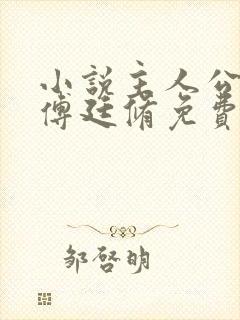 小說主人公
傅廷脩免費
邹啓明